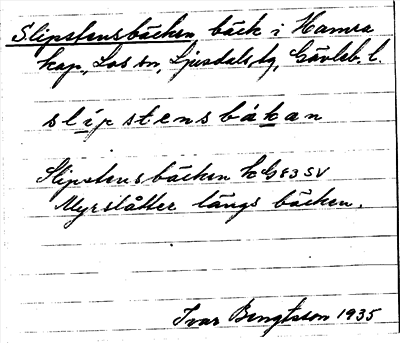 Slipstensbäcken bäck i Hamra
kap., Los sn, Ljusdals tg, Gävleb. l.
slipstensbäkan
Slipstensbäcken k G83 SV
Myrslåtter längs bäcken.
Ivar Bengtsson 1935